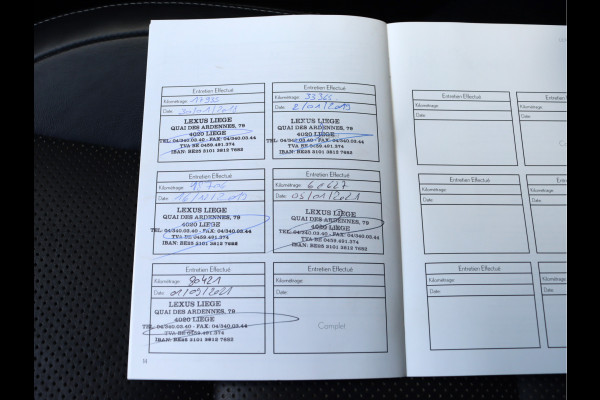 Entretien Effectué
Kilométrage:
Date:
LEXUS LIEGE
QUAI DES ARDENNES, 79
4020 LIEGE
TEL: 04/340.03.40 - FAX: 04/340.03.44
TVA BE 0459.491.374
IBAN: BE25 3101 3812 7682
Entretien Effectué
Kilométrage: 33365
Date: 2/01/2019
LEXUS LIEGE
QUAI DES ARDENNES, 79
4020 LIEGE
TEL: 04/340.03.40 - FAX: 04/340.03.44
TVA BE 0459.491.374
IBAN: BE25 3101 3812 7682
Entretien Effectué
Kilométrage:
Date:
LEXUS LIEGE
QUAI DES ARDENNES, 79
4020 LIEGE
TEL: 04/340.03.40 - FAX: 04/340.03.44
TVA BE 0459.491.374
IBAN: BE25 3101 3812 7682
Entretien Effectué
Kilométrage:
Date: 05/01/2021
LEXUS LIEGE
QUAI DES ARDENNES, 79
4020 LIEGE
TEL: 04/340.03.40 - FAX: 04/340.03.44
TVA BE 0459.491.374
IBAN: BE25 3101 3812 7682
Entretien Effectué
Kilométrage: 80421
Date: 01/09/2021
LEXUS LIEGE
QUAI DES ARDENNES, 79
4020 LIEGE
TEL: 04/340.03.40 - FAX: 04/340.03.44
TVA BE 0459.491.374
IBAN: BE25 3101 3812 7682
Entretien Effectué
Kilométrage:
Date:
Complet
14
Entretien Effectué
Kilométrage:
Date:
Entretien
Kilométrage:
Date:
Entretien Effectué
Kilométrage:
Date:
Kilométrage:
Date:
Entretien Effectué
Kilométrage:
Date:
Kilométrage:
Date: